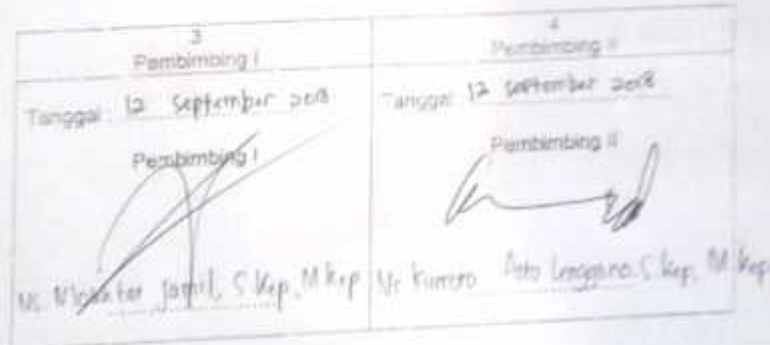 3
Pembimbing I
Tanggal: 12 September 2018
Pembimbing I
Ns. Mokhtar Jamil, S.Kep, M.Kep
4
Pembimbing II
Tanggal 12 September 2018
Pembimbing II
Ns Kumoro Asto Lenggono. S.Kep, M.Kep